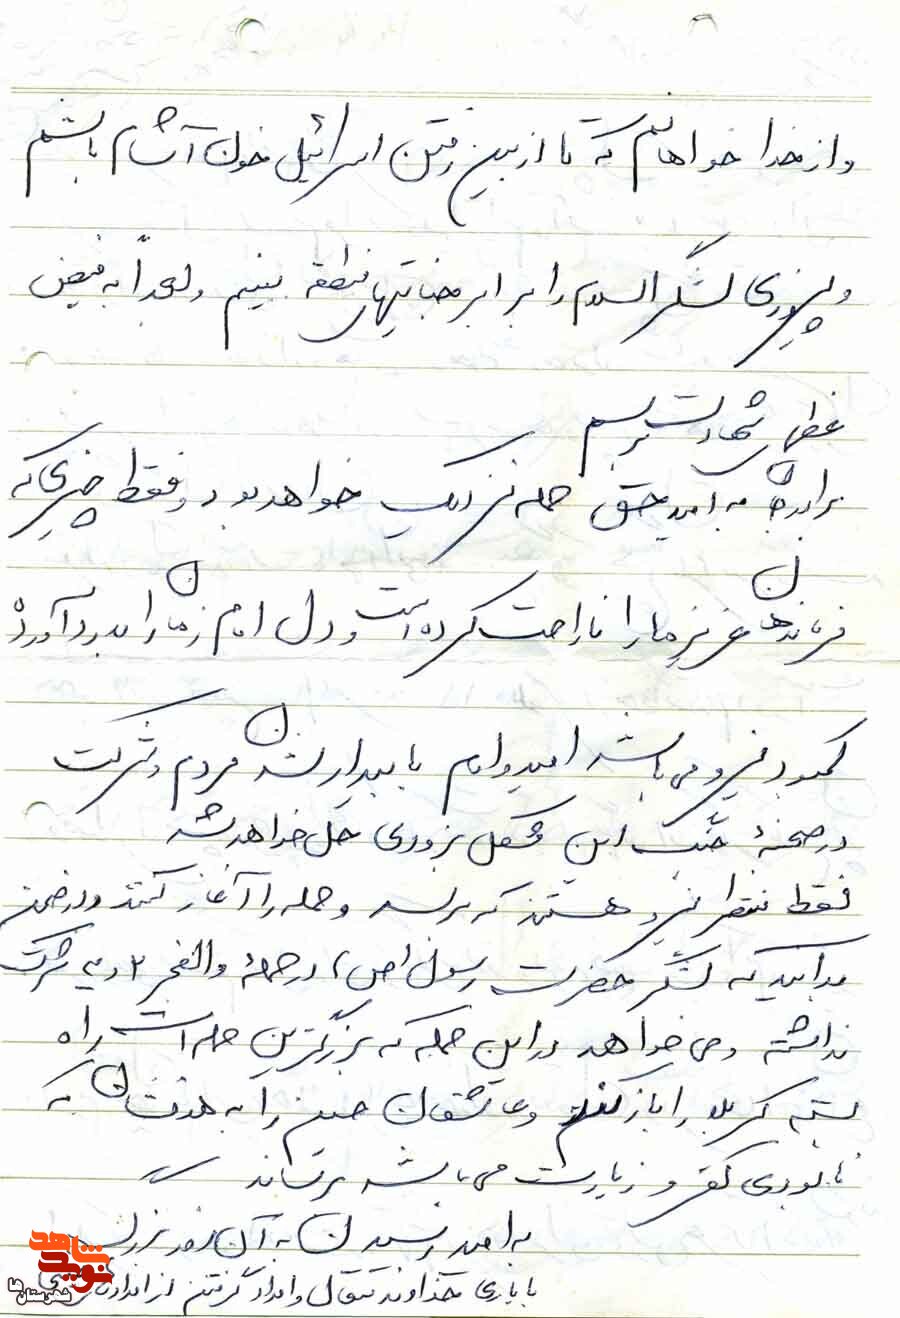 و از خدا خواهانم که تا از بین رفتن اسرائیل خون آشام باشم
و پیروزی لشگر اسلام را بر ابر جنایتهای منطقه ببینم و بعداً به فیض
عظمی شهادت برسم
برادران به امید حق حمله نزدیک خواهد بود و فقط چیزی که
فرماندهان عزیز ما را ناراحت کرده است و دل امام زمان را بدرد آورده
کمبود نیرو می باشد امیدوارم با بیدار شدن مردم و شرکت
در صحنهٔ جنگ این مشکل بزودی حل خواهد شد
فقط منتظر نیرو هستند که برسد و حمله را آغاز کنند و در ضمن
بدانید که لشگر حضرت رسول (ص) در حملهٔ والفجر ۲ شرکت
نداشته و می خواهد در این حمله که بزرگترین حمله است راه
بسته کربلا را باز کنیم و عاشقان حسین را به هدفشان که
نابودی کفر و زیارت می باشد برساند
به امید رسیدن به آن روز بزرگ
با یاری خداوند متعال و امداد گرفتن از امدادهای
نوید شاهد
شهرستان‌ها